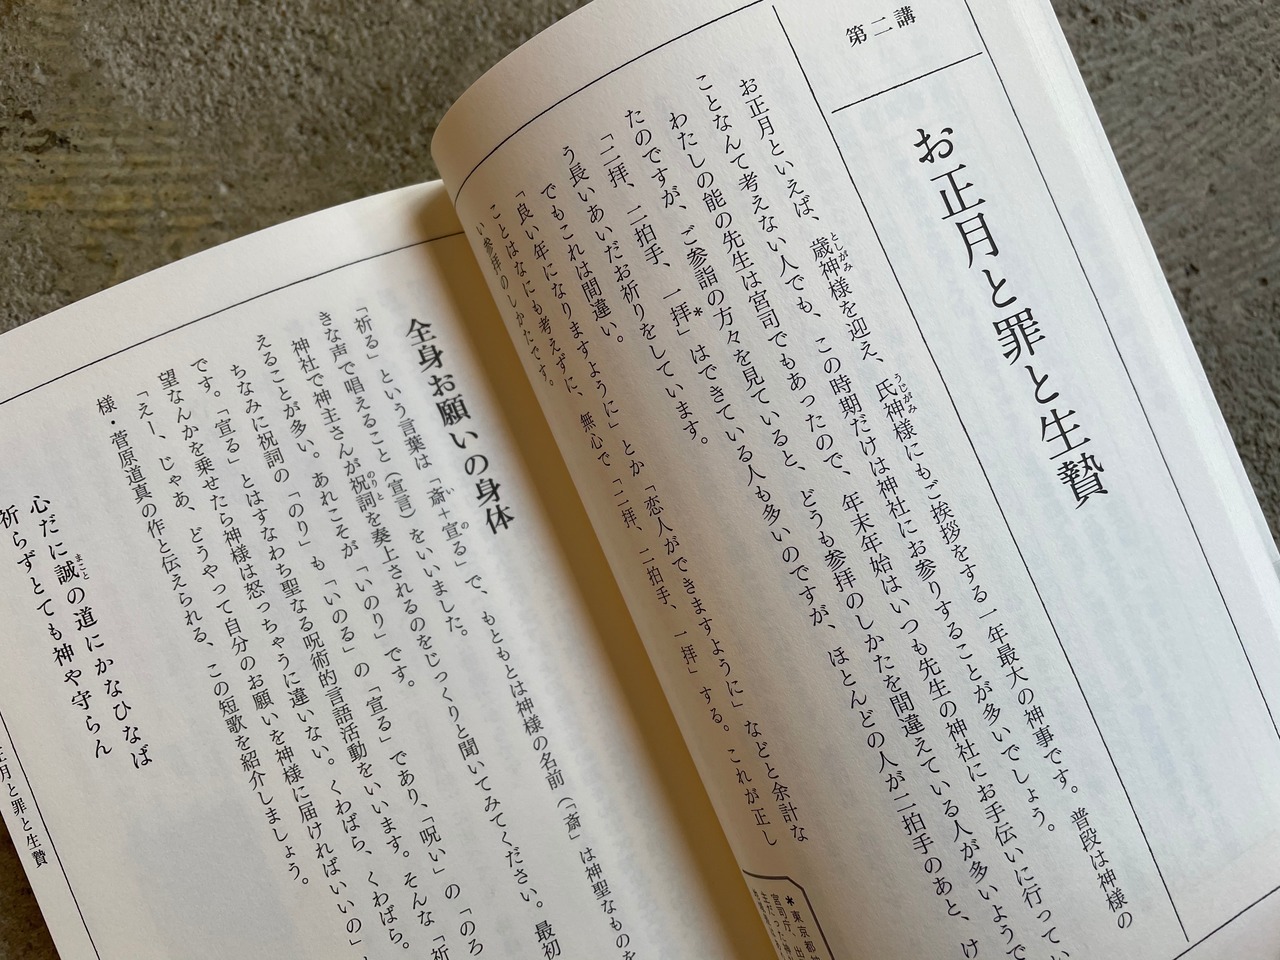 第二講
お正月と罪と生贄
お正月といえば、歳神様を迎え、氏神様にもご挨拶をする一年最大の神事です。普段は神様の
ことなんて考えない人でも、この時期だけは神社にお参りすることが多いでしょう。
わたしの能の先生は宮司でもあったので、年末年始はいつも先生の神社にお手伝いに行ってい
たのですが、ご参詣の方々を見ていると、どうも参拝のしかたを間違えている人が多いようで
「二拝、二拍手、一拝」*はできている人も多いのですが、ほとんどの人が二拍手のあと、け
う長いあいだお祈りをしています。
でもこれは間違い。
「良い年になりますように」とか「恋人ができますように」などと余計な
ことはなにも考えずに、無心で「二拝、二拍手、一拝」する。これが正し
い参拝のしかたです。
*東京都
宮司庁、出
全身お願いの身体
「祈る」という言葉は「斎+宣る」で、もともとは神様の名前(「斎」は神聖なものを
きな声で唱えること(宣言)をいいました。
神社で神主さんが祝詞を奏上されるのをじっくりと聞いてみてください。最初
えることが多い。あれこそが「いのり」です。
ちなみに祝詞の「のり」も「いのる」の「宣る」であり、「呪い」の「のろ
です。「宣る」とはすなわち聖なる呪術的言語活動をいいます。そんな「祈
望なんかを乗せたら神様は怒っちゃうに違いない。くわばら、くわばら。
「えー、じゃあ、どうやって自分のお願いを神様に届ければいいの」
様・菅原道真の作と伝えられる、この短歌を紹介しましょう。
心だに誠の道にかなひなば
祈らずとても神や守らん
正月と罪と生贄